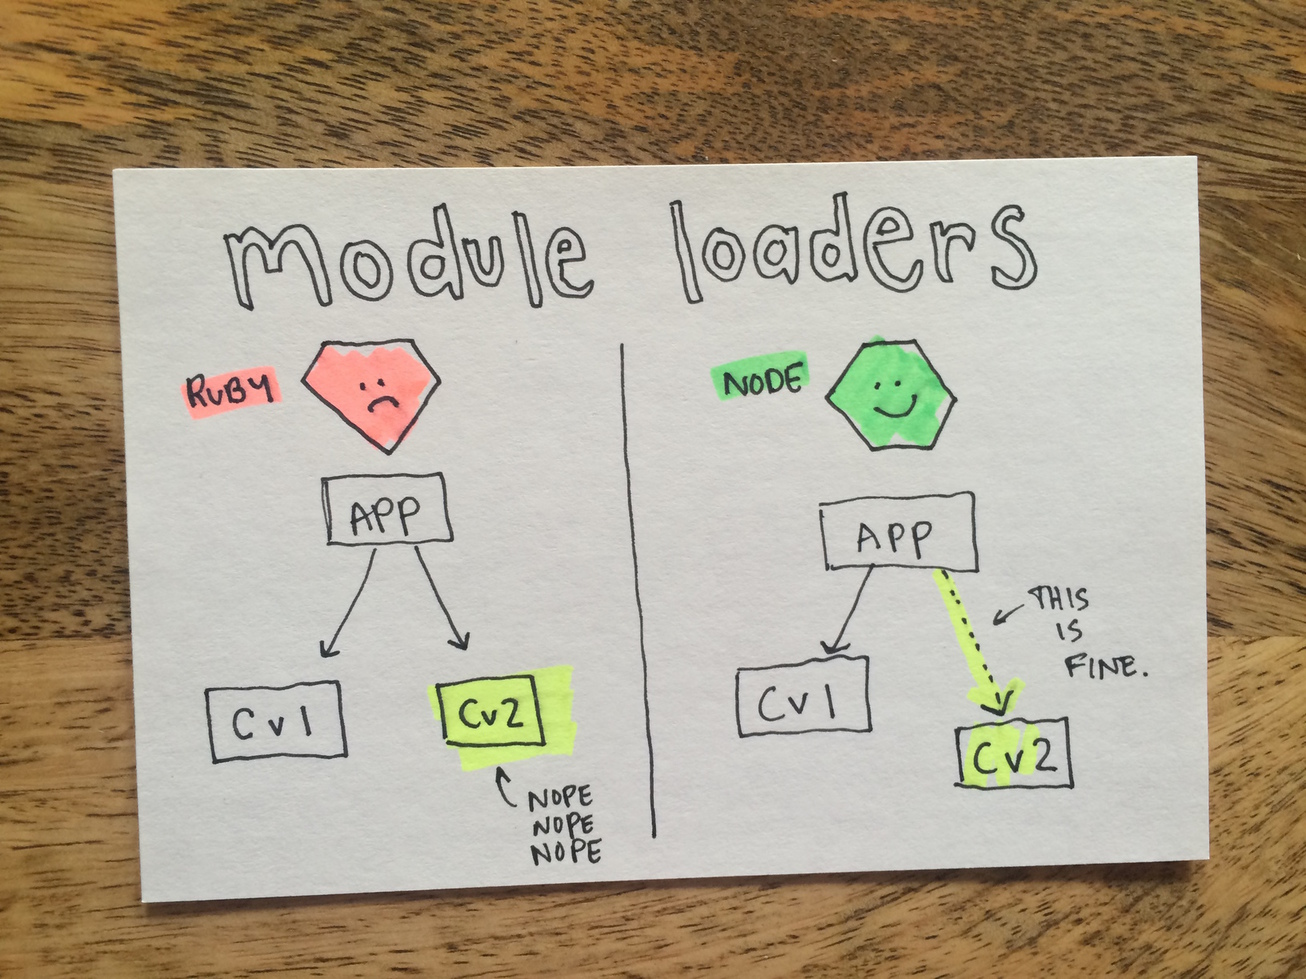 module loaders
RUBY
APP
Cv1
Cv2
NOPE
NOPE
NOPE
NODE
APP
THIS
IS
FINE.
Cv1
Cv2